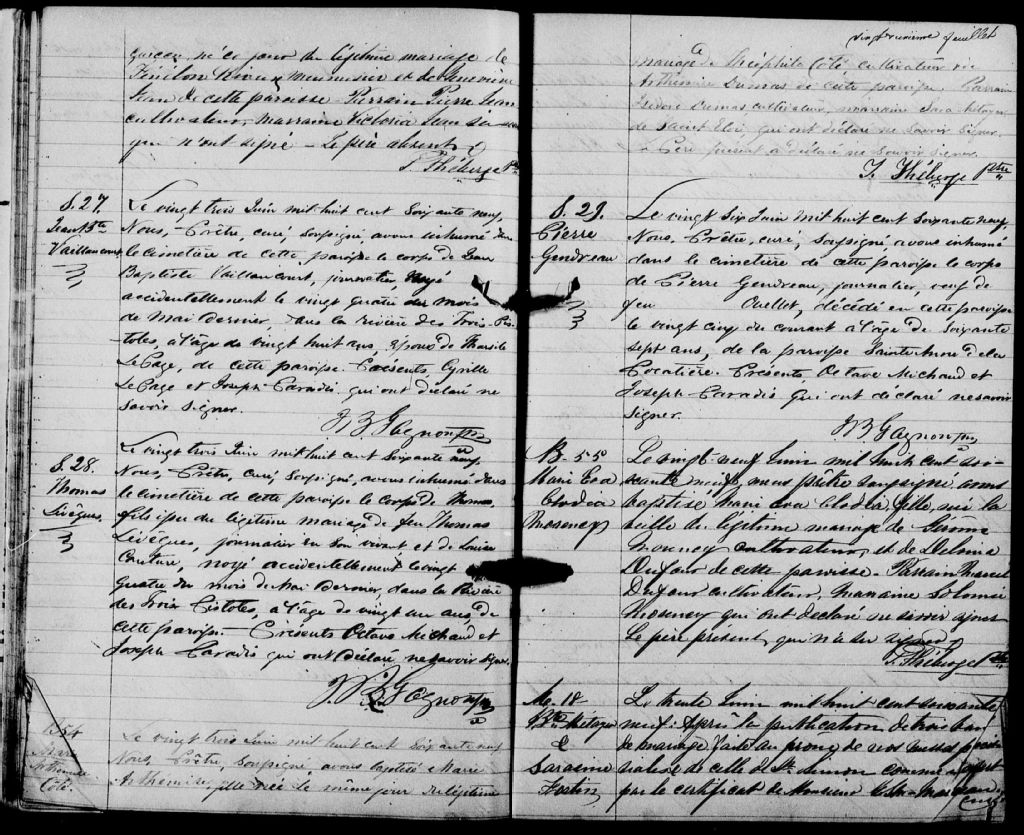 né ce jour du légitime mariage de
Fénélon Rioux menuisier et de Geneviève
Jean de cette paroisse Parrain Pierre Jean
cultivateur, marraine Victoria Jean
qui n'ont signé – Le père absent
J. Théberge Ptre
S. 27.
Jean Bte
Vaillancourt
Le vingt trois Juin mil huit cent Soixante neuf,
Nous, Prêtre, curé, soussigné, avons inhumé dans
le cimetière de cette paroisse le corps de Jean
Baptiste Vaillancourt, journalier, noyé
accidentellement le vingt quatre du mois
de Mai dernier, dans la rivière des Trois-Pis-
toles, à l'âge de vingt huit ans, époux de Marcile
LePage, de cette paroisse. Présents, Cyrille
LePage et Joseph Paradis qui ont déclaré ne
savoir signer.
J B Gagnon ptre
S. 28.
Thomas
Lévêque.
Le vingt trois Juin mil huit cent Soixante neuf,
Nous, Prêtre, curé, soussigné, avons inhumé dans
le cimetière de cette paroisse le corps de Thomas,
fils issu du légitime mariage de feu Thomas
Lévêque, journalier en son vivant et de Louise
Couture, noyé accidentellement le vingt
quatre du mois de Mai dernier, dans la Rivière
des Trois Pistoles, à l'âge de vingt un ans, de
cette paroisse. Présents Octave Michaud et
Joseph Paradis qui ont déclaré ne savoir signer.
J. B Gagnon ptre
B 54
Marie
Arthémise
Côté.
Le vingt trois Juin mil huit cent Soixante neuf
Nous, Prêtre, soussigné, avons baptisé Marie
Arthémise, fille née le même jour du légitime
feuillet
mariage de Théophile Côté, cultivateur et
Arthémise Dumas de cette paroisse Parrain
Isidore Dumas, cultivateur, marraine Sara
de Saint Eloi, qui ont déclaré ne savoir signer.
Le Père présent a déclaré ne savoir signer.
J. Théberge Ptre
S. 29.
Pierre
Gendreau
Le vingt Six Juin mil huit cent soixante neuf,
Nous, Prêtre, curé, soussigné avons inhumé
dans le cimetière de cette paroisse le corps
de Pierre Gendreau, journalier, veuf de
feu Ouellet, décédé en cette paroisse
le vingt cinq du courant à l'âge de Soixante
sept ans, de la paroisse Sainte Anne de la
Pocatière. Présents, Octave Michaud et
Joseph Paradis qui ont déclaré ne savoir
signer.
J B Gagnon ptre
B. 55
Marie Eva
Clodia
Le vingt-neuf Juin mil huit cent soi-
xante neuf, nous prêtre soussigné avons
baptisé Marie Eva Clodia fille, née la
veille du légitime mariage de
cultivateur, et de Delima
Dufour de cette paroisse. Parrain Marcel
Dufour cultivateur, marraine Salomée
qui ont déclaré ne savoir signer
Le père présent, qui n'a su signer
J. Théberge Ptre
M. 18
Bte
&
Sarasine
Le trente Juin mil huit cent soixante
neuf. Après la publication de trois bans
de mariage faite au prône de nos messes paroissiales
de celle de St. Simon comme
par le certificat de Monsieur
curé